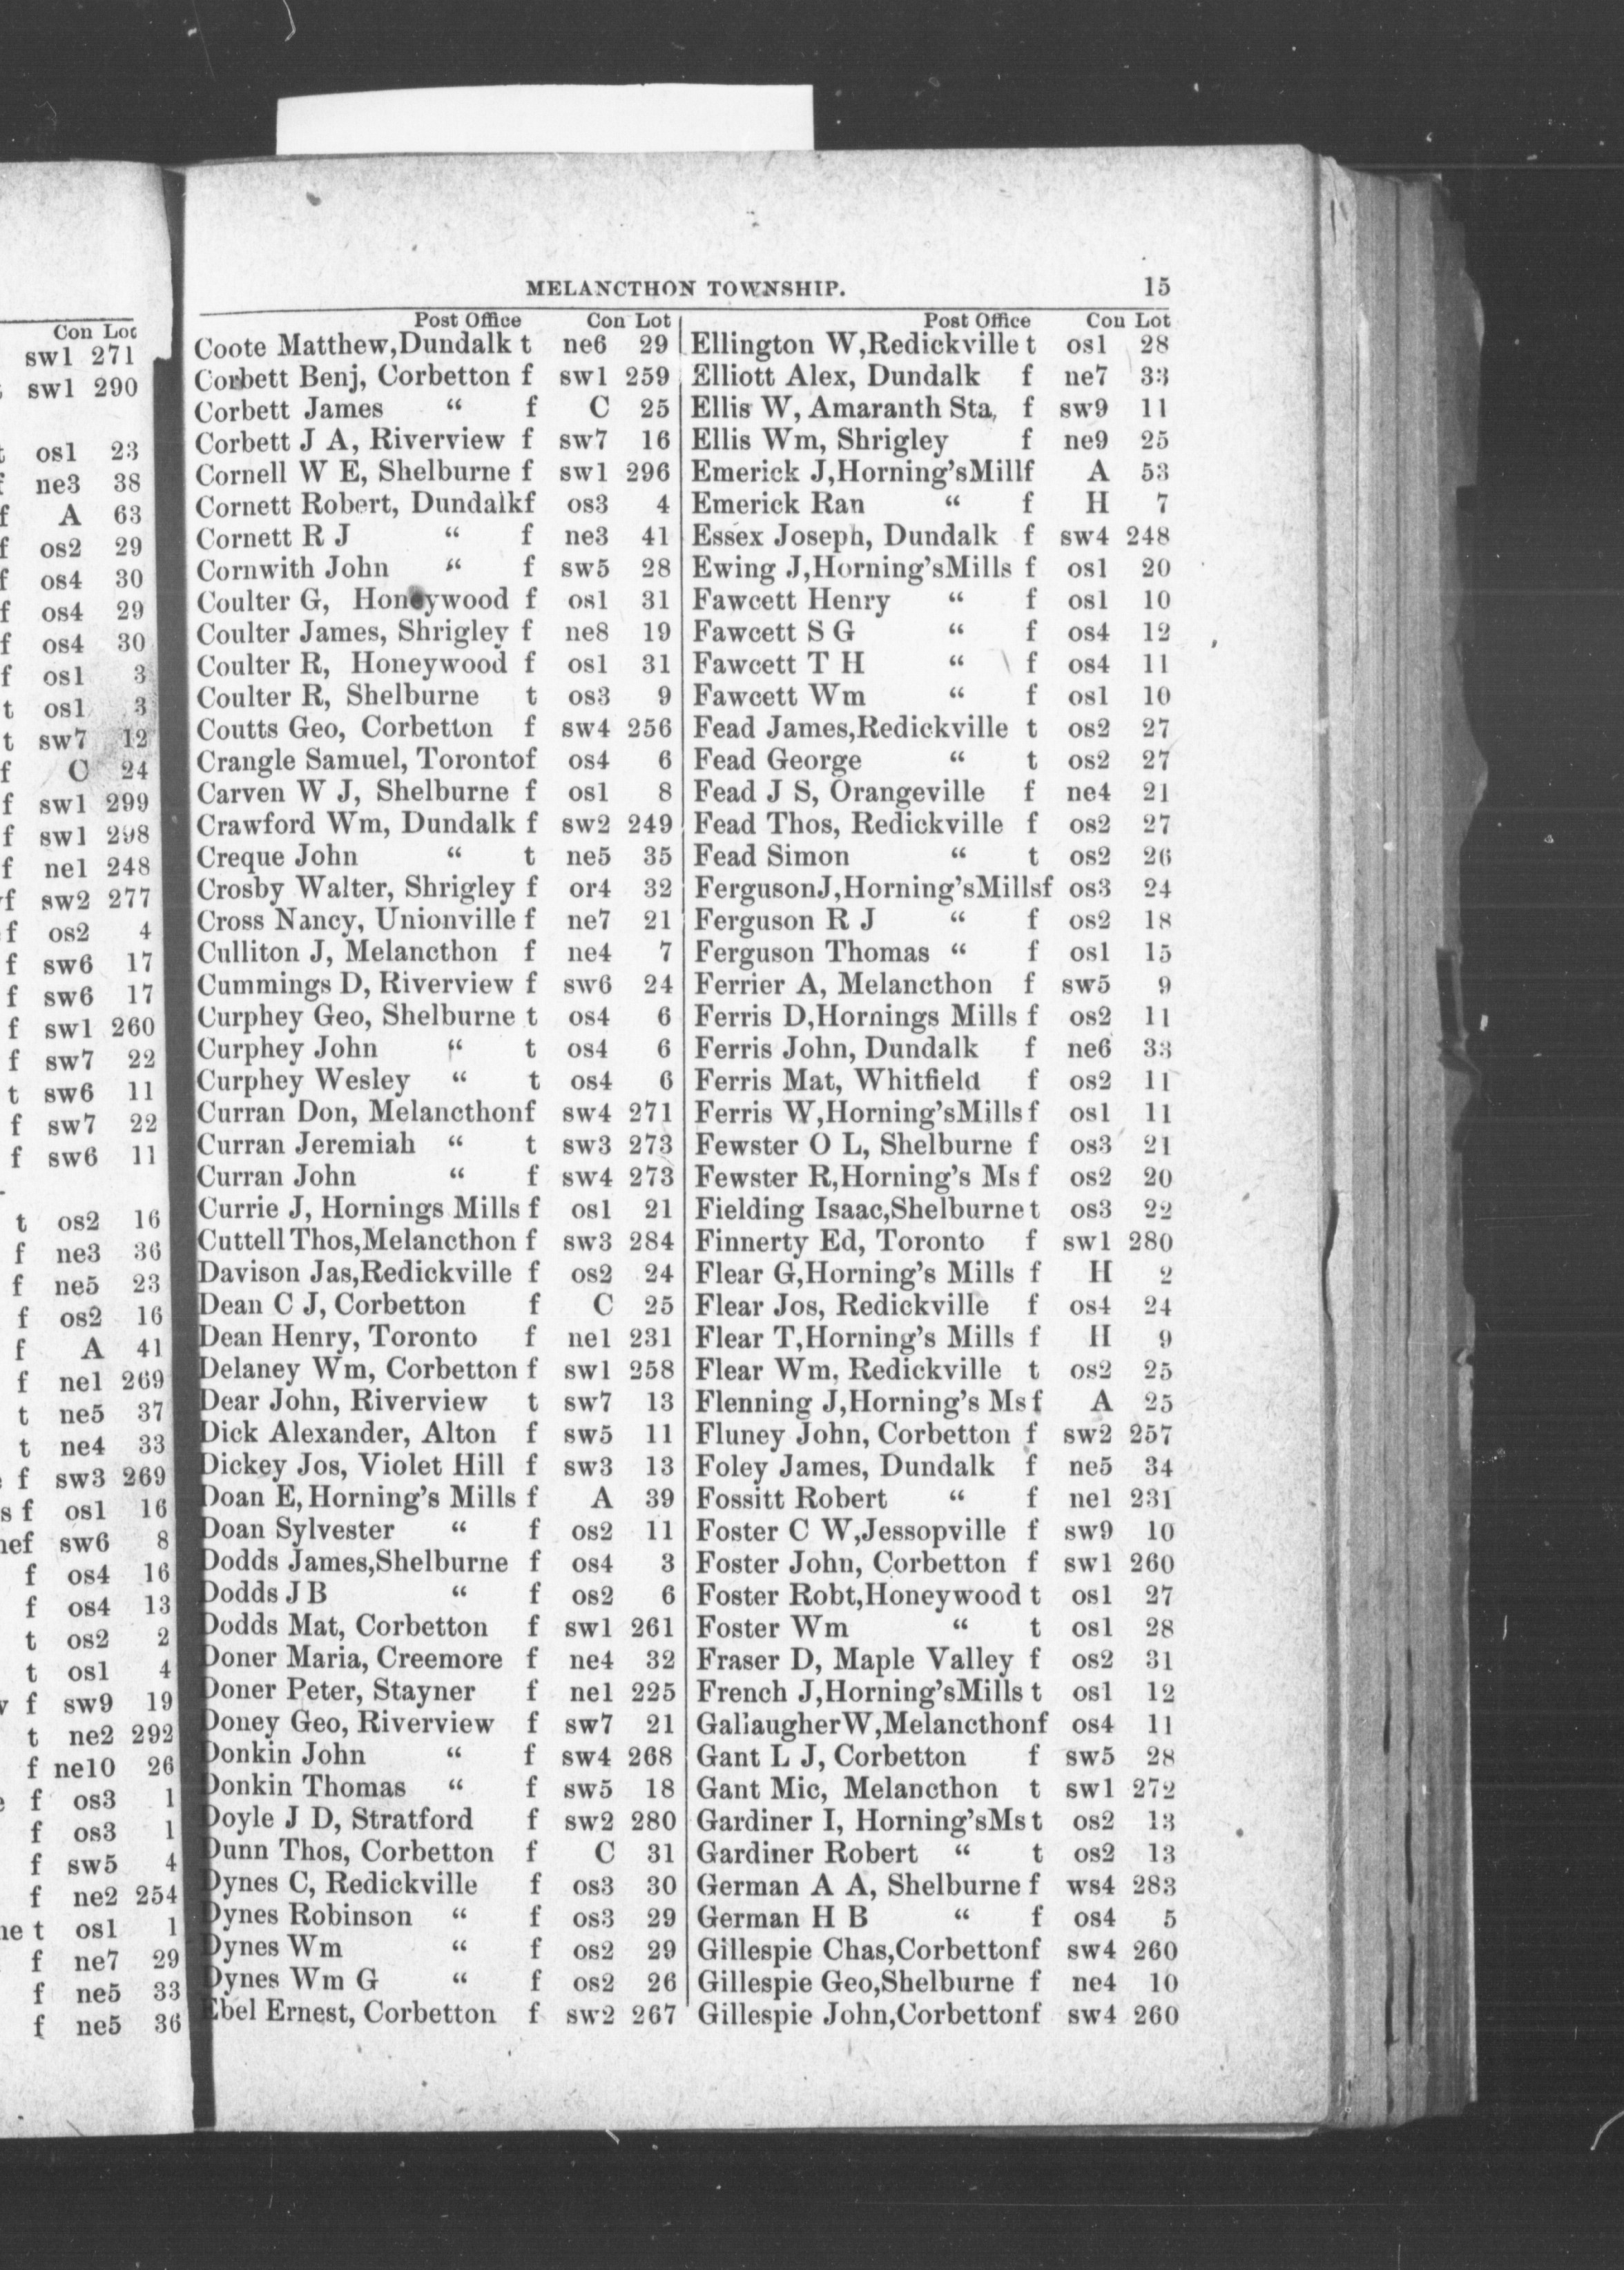 Con Lot
sw1 271
sw1 290
os1 23
f ne3 38
f A 63
f os2 29
f os4 30
f os4 29
f os4 30
f os1 3
t os1 3
t sw7 12
f C 24
f sw1 299
f sw1 298
f ne1 248
f sw2 277
f os2 4
f sw6 17
f sw6 17
f sw1 260
f sw7 22
t sw6 11
f sw7 22
f sw6 11
t os2 16
f ne3 36
f ne5 23
f os2 16
f A 41
f ne1 269
t ne5 37
t ne4 33
f sw3 269
s f os1 16
nef sw6 8
f os4 16
f os4 13
t os2 2
t os1 4
f sw9 19
t ne2 292
f ne10 26
f os3 1
f os3 1
f sw5 4
f ne2 254
ne t os1 1
f ne7 29
f ne5 33
f ne5 36
MELANCTHON TOWNSHIP. 15
Post Office Con Lot
Coote Matthew,Dundalk t ne6 29
Corbett Benj, Corbetton f sw1 259
Corbett James “ f C 25
Corbett J A, Riverview f sw7 16
Cornell W E, Shelburne f sw1 296
Cornett Robert, Dundalkf os3 4
Cornett R J “ f ne3 41
Cornwith John “ f sw5 28
Coulter G, Honeywood f os1 31
Coulter James, Shrigley f ne8 19
Coulter R, Honeywood f os1 31
Coulter R, Shelburne t os3 9
Coutts Geo, Corbetton f sw4 256
Crangle Samuel, Torontof os4 6
Carven W J, Shelburne f os1 8
Crawford Wm, Dundalk f sw2 249
Creque John “ t ne5 35
Crosby Walter, Shrigley f or4 32
Cross Nancy, Unionville f ne7 21
Culliton J, Melancthon f ne4 7
Cummings D, Riverview f sw6 24
Curphey Geo, Shelburne t os4 6
Curphey John “ t os4 6
Curphey Wesley “ t os4 6
Curran Don, Melancthonf sw4 271
Curran Jeremiah “ t sw3 273
Curran John “ f sw4 273
Currie J, Hornings Mills f os1 21
Cuttell Thos,Melancthon f sw3 284
Davison Jas,Redickville f os2 24
Dean C J, Corbetton f C 25
Dean Henry, Toronto f ne1 231
Delaney Wm, Corbetton f sw1 258
Dear John, Riverview t sw7 13
Dick Alexander, Alton f sw5 11
Dickey Jos, Violet Hill f sw3 13
Doan E, Horning's Mills f A 39
Doan Sylvester “ f os2 11
Dodds James,Shelburne f os4 3
Dodds J B “ f os2 6
Dodds Mat, Corbetton f sw1 261
Doner Maria, Creemore f ne4 32
Doner Peter, Stayner f ne1 225
Doney Geo, Riverview f sw7 21
Donkin John “ f sw4 268
Donkin Thomas “ f sw5 18
Doyle J D, Stratford f sw2 280
Dunn Thos, Corbetton f C 31
Dynes C, Redickville f os3 30
Dynes Robinson “ f os3 29
Dynes Wm “ f os2 29
Dynes Wm G “ f os2 26
Ebel Ernest, Corbetton f sw2 267
Post Office Con Lot
Ellington W,Redickville t os1 28
Elliott Alex, Dundalk f ne7 33
Ellis W, Amaranth Sta, f sw9 11
Ellis Wm, Shrigley f ne9 25
Emerick J,Horning'sMillf A 53
Emerick Ran “ f H 7
Essex Joseph, Dundalk f sw4 248
Ewing J,Horning'sMills f os1 20
Fawcett Henry “ f os1 10
Fawcett S G “ f os4 12
Fawcett T H “ f os4 11
Fawcett Wm “ f os1 10
Fead James,Redickville t os2 27
Fead George “ t os2 27
Fead J S, Orangeville f ne4 21
Fead Thos, Redickville f os2 27
Fead Simon “ t os2 26
FergusonJ,Horning'sMillsf os3 24
Ferguson R J “ f os2 18
Ferguson Thomas “ f os1 15
Ferrier A, Melancthon f sw5 9
Ferris D,Hornings Mills f os2 11
Ferris John, Dundalk f ne6 33
Ferris Mat, Whitfield f os2 11
Ferris W,Horning'sMills f os1 11
Fewster O L, Shelburne f os3 21
Fewster R,Horning's Ms f os2 20
Fielding Isaac,Shelburne t os3 22
Finnerty Ed, Toronto f sw1 280
Flear G,Horning's Mills f H 2
Flear Jos, Redickville f os4 24
Flear T,Horning's Mills f H 9
Flear Wm, Redickville t os2 25
Flenning J,Horning's Ms f A 25
Fluney John, Corbetton f sw2 257
Foley James, Dundalk f ne5 34
Fossitt Robert “ f ne1 231
Foster C W,Jessopville f sw9 10
Foster John, Corbetton f sw1 260
Foster Robt,Honeywood t os1 27
Foster Wm “ t os1 28
Fraser D, Maple Valley f os2 31
French J,Horning'sMills t os1 12
GallaugherW,Melancthonf os4 11
Gant L J, Corbetton f sw5 28
Gant Mic, Melancthon t sw1 272
Gardiner I, Horning'sMs t os2 13
Gardiner Robert “ t os2 13
German A A, Shelburne f ws4 283
German H B “ f os4 5
Gillespie Chas,Corbettonf sw4 260
Gillespie Geo,Shelburne f ne4 10
Gillespie John,Corbettonf sw4 260